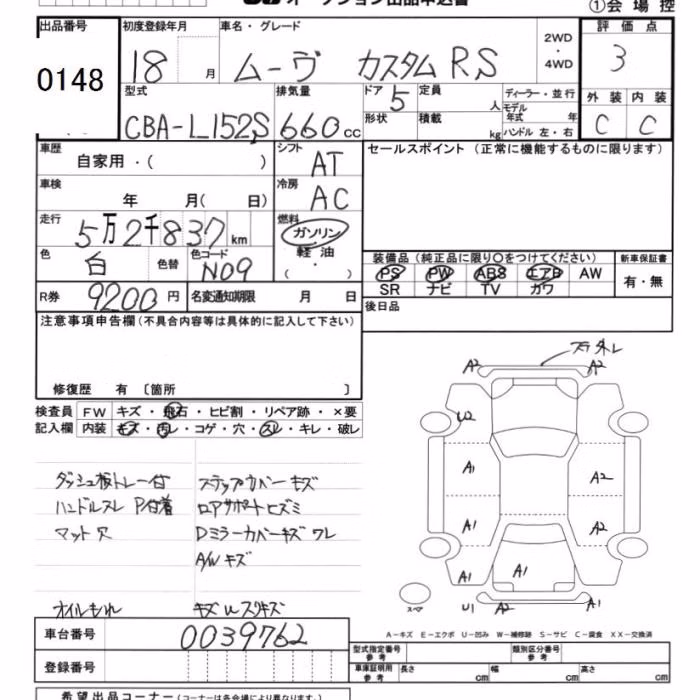 オークション出品申込書
①会場控
出品番号 初度登録年月 車名・グレード 2WD・4WD 評価点
0148 18 月 ムーヴ カスタム RS 3
型式 排気量 ドア 定員 人 ディーラー・並行 外装 内装
CBA-L152S 660cc 5 モデル年式 年 C C
形状 積載 kg ハンドル 左・右
車歴 シフト セールスポイント (正常に機能するものに限ります)
自家用・( ) AT
車検 冷房
年 月( 日) AC
走行 燃料
5万2千837km ガソリン
色 色替 色コード 軽油・
白 N09 ( )
装備品 (純正品に限り○をつけてください) 新車保証書
PS PW ABS エアB AW 有・無
SR ナビ TV カワ
R券 9200円 名変通知期限 月 日
後日品
注意事項申告欄 (不具合内容等は具体的に記入して下さい)
修復歴 有 〔箇所 〕
検査員 FW キズ・飛石・ヒビ割・リペア跡・×要
記入欄 内装 キズ・汚レ・コゲ・穴・スレ・キレ・破レ
ダッシュ板トレー付 ステップカバーキズ
ハンドルスレ P付着 ロアサポートヒズミ
マット穴 Dミラーカバーキズ ワレ
A/W キズ
オイルもれ キズ U スリキズ
A2 A2
U2
A1 A2
A1 A2
A1 A1
スペア U1 A2 A1
A-キズ E-エクボ U-凹み W-補修跡 S-サビ C-腐食 XX-交換済
車台番号 0039762
型式指定番号 参考 類別区分番号 参考
登録番号
車庫証明用 参考 長さ cm 幅 cm 高さ cm
希望出品コーナー (コーナーは各会場により異なります。)